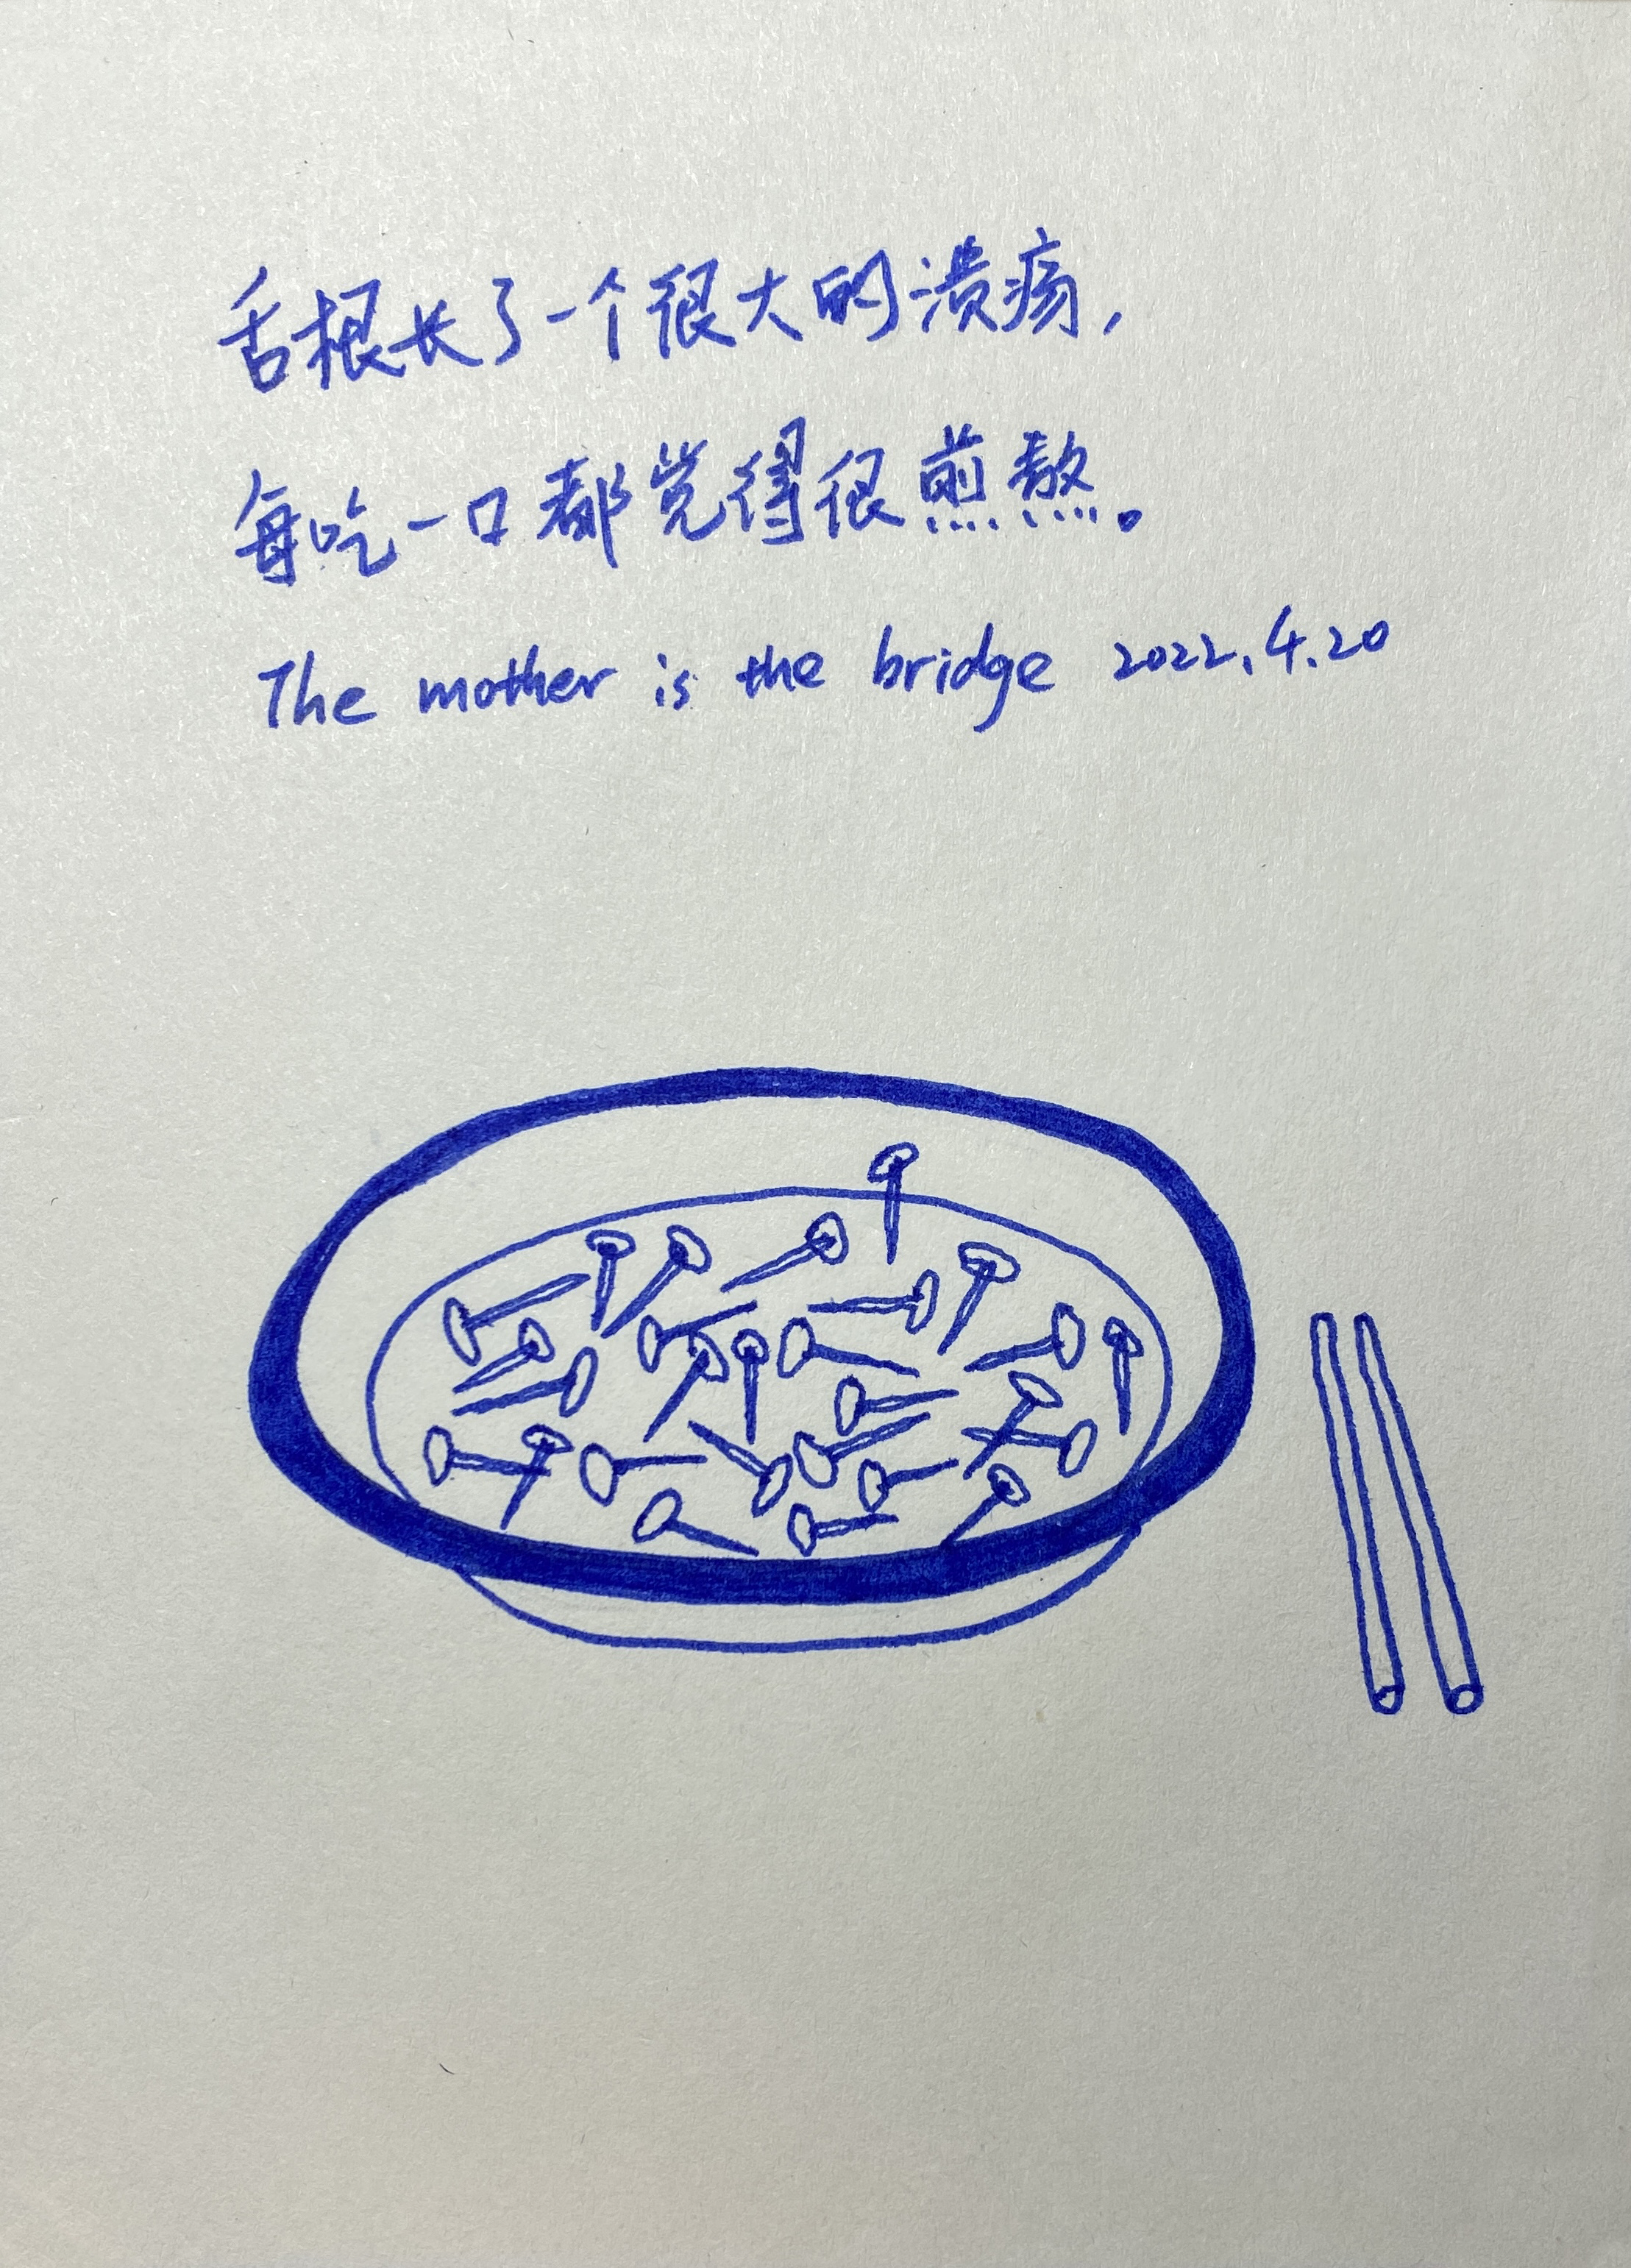 舌根长了一个很大的溃疡，
每吃一口都觉得很煎熬。
The mother is the bridge 2022.4.20